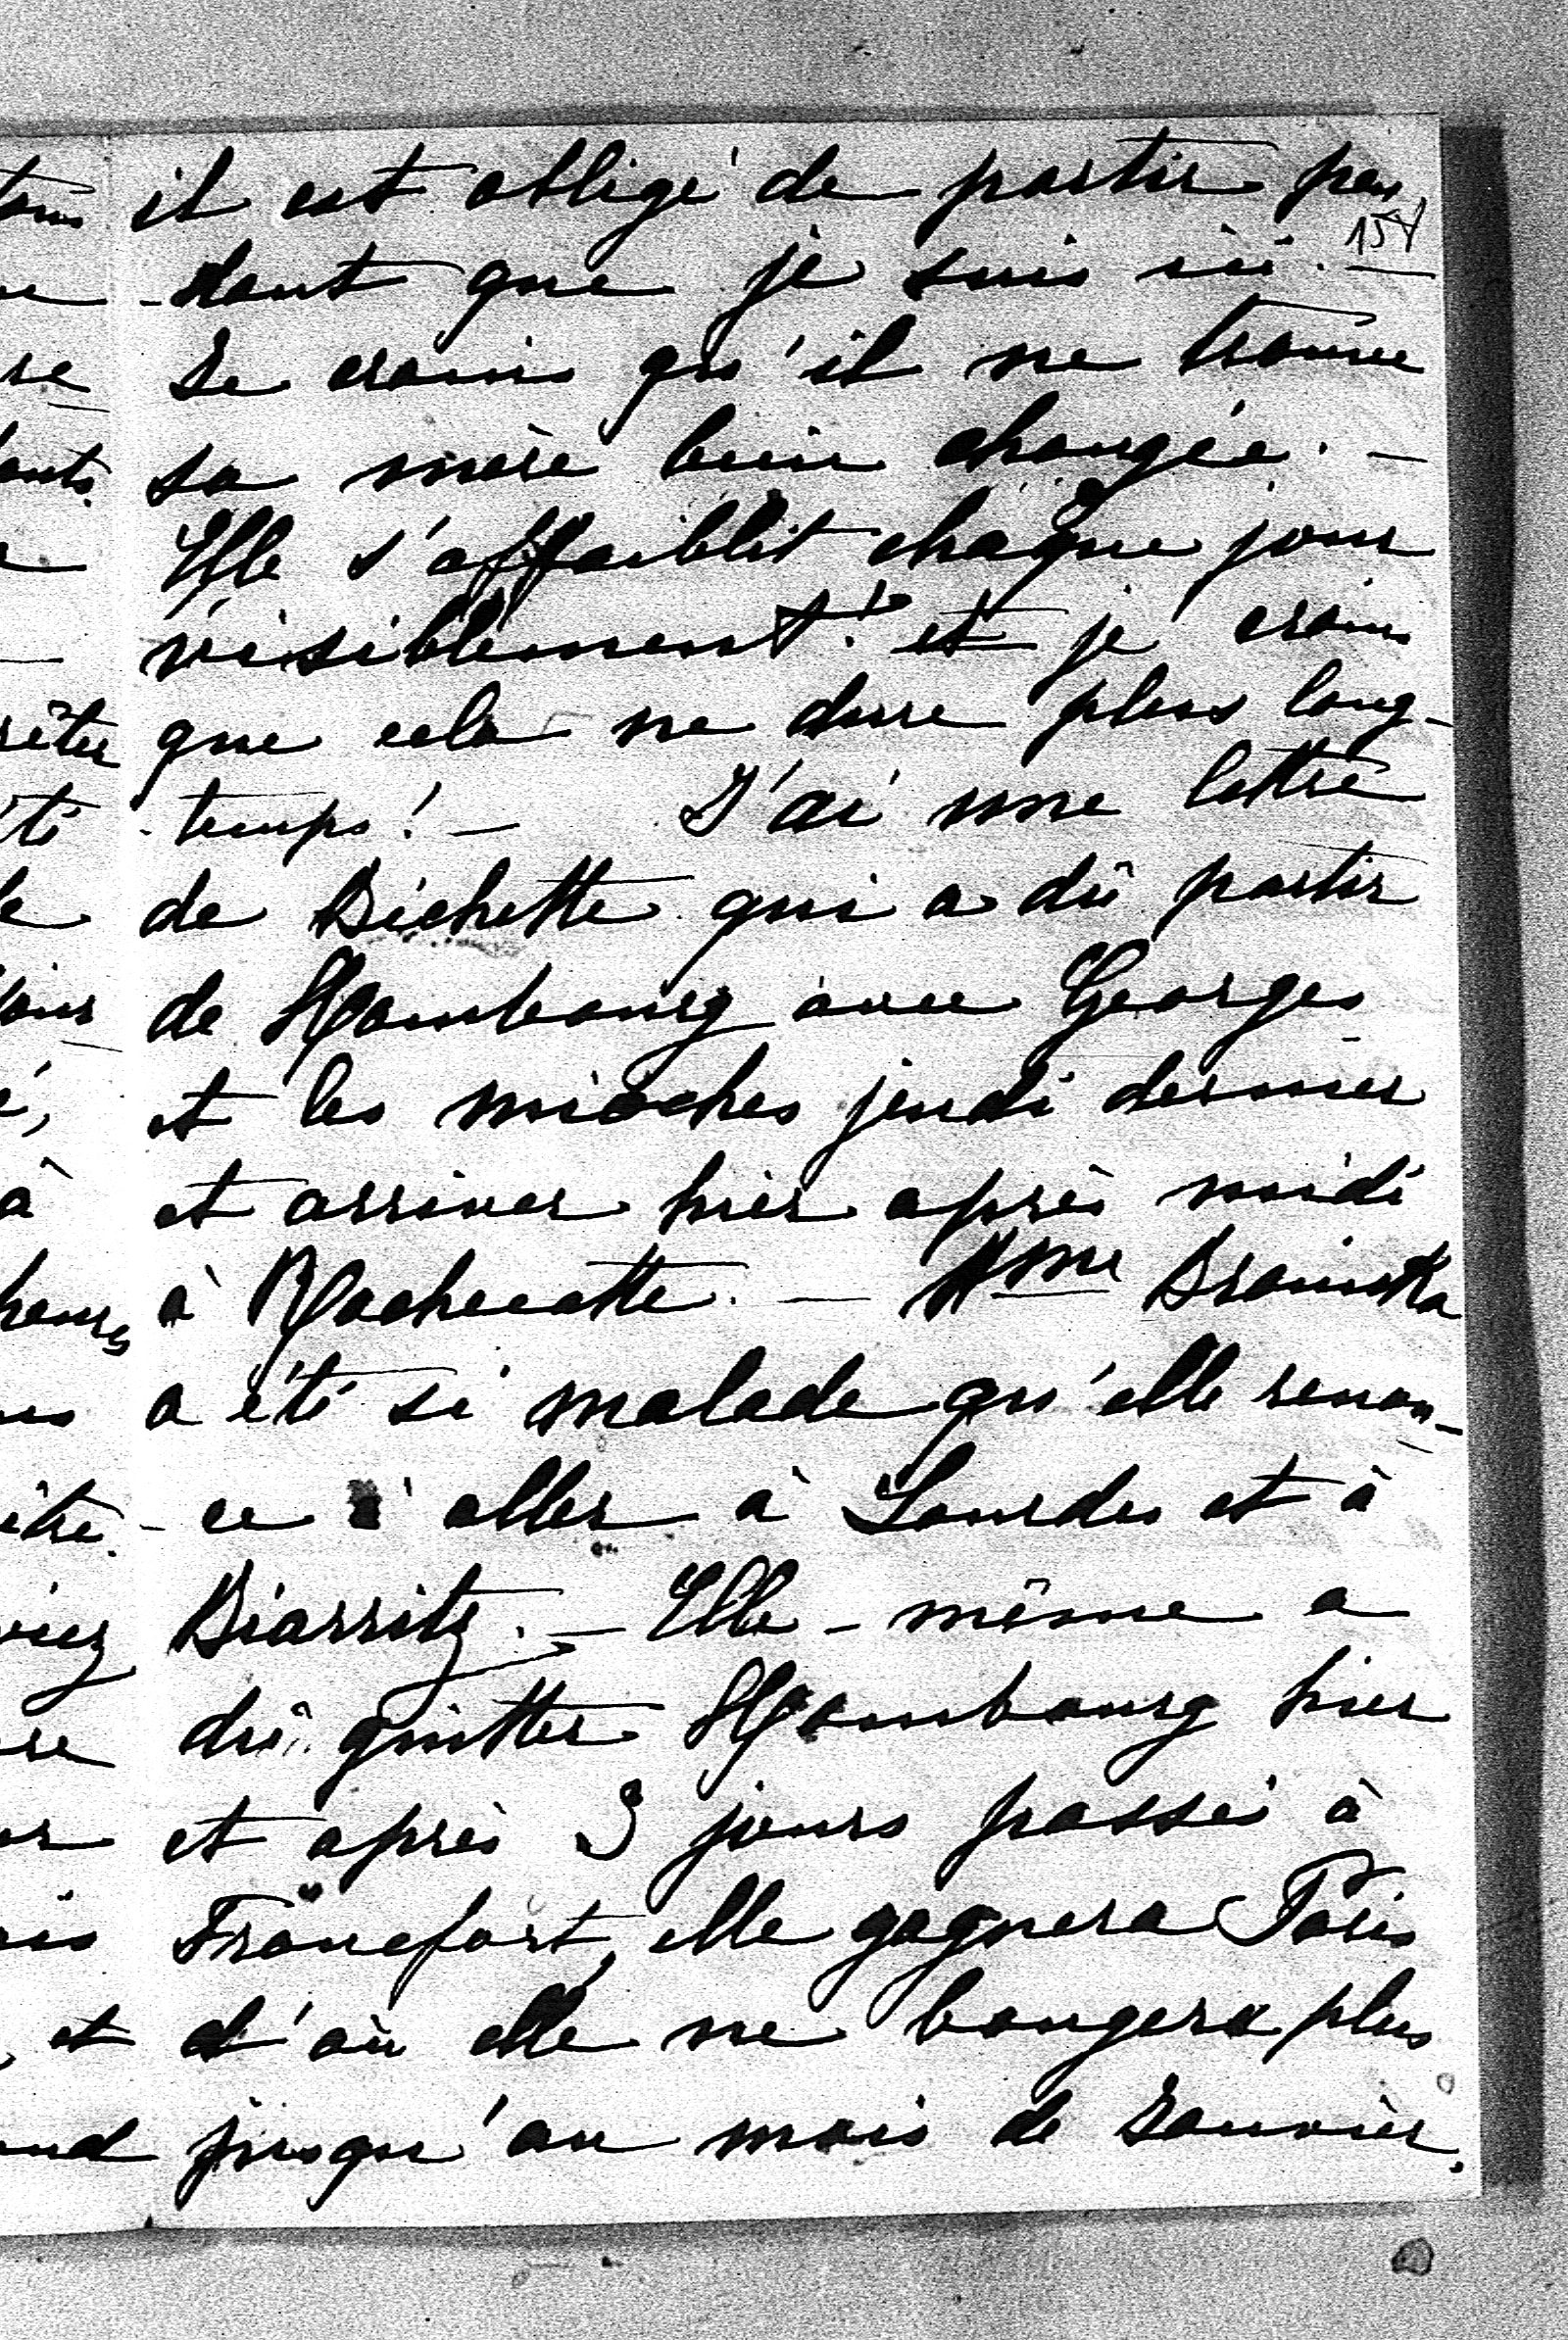 il est obligé de partir pen
154
-dant que je suis ici. —
Je crains qu'il ne trouve
sa mère bien changée. —
Elle s'affaiblit chaque jour
visiblement! et je crains
que cela ne dure plus long-
temps! — J'ai une lettre
de Bichette qui a dû partir
de Hombourg avec Georges
et les mioches jeudi dernier
et arriver hier après midi
à Rochecotte. — Mme Branicka
a été si malade qu'elle renon-
-ce à aller à Lourdes et à
Biarritz. — Elle-même a
dû quitter Hombourg hier
et après 3 jours passés à
Francfort, elle gagnera Paris
d'où elle ne bougera plus
jusqu'au mois de Janvier.